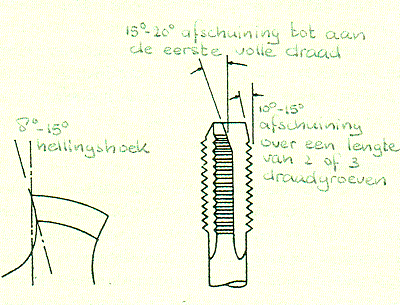 15°-20° afschuining tot aan
de eerste volle draad
8°-15°
hellingshoek
10°-15°
afschuining
over een lengte
van 2 of 3
draadgroeven